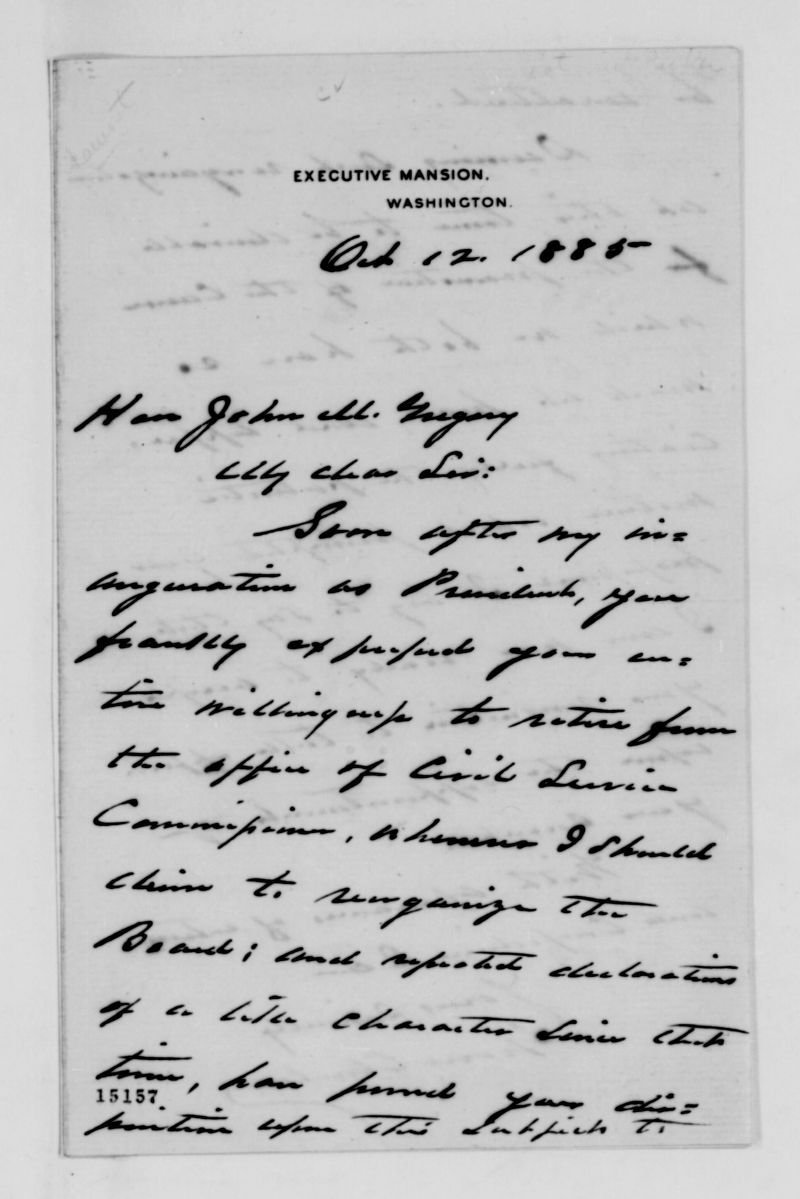 EXECUTIVE MANSION,
WASHINGTON.
Oct 12. 1885
Hon John M. Gregory
My dear Sir:
Soon after my in=
auguration as President, you
frankly expressed your en=
tire willingness to retire from
the office of Civil Service
Commissioner, whenever I should
desire to reorganize the
Board; and repeated declarations
of a like character since that
time, have proved your dis=
position upon this subject to
15157